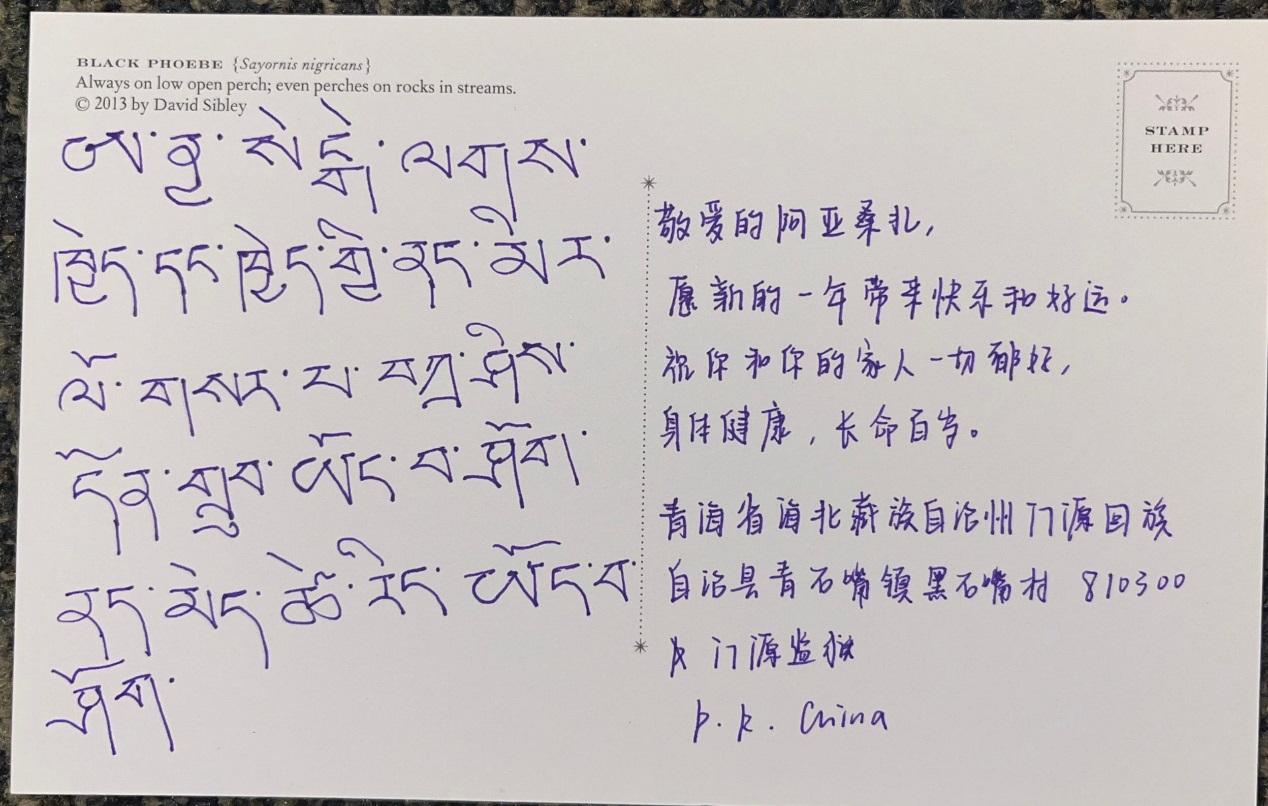 BLACK PHOEBE {Sayornis nigricans}
Always on low open perch; even perches on rocks in streams.
© 2013 by David Sibley
STAMP
HERE
ཨ་ཉ་ སེངྡྲེ་ ལགས་
ཁྱེད་དང་ཁྱེད་ཀྱི་ནང་མི་ར་
ལོ་ གསར་ པ་ བཀྲ་ཤིས་
དོན་གྲུབ་ ཡོང་བ་ཤོག།
ནད་མེད་ཚེ་རིང་ ཡོད་པ་
ཤོག།
敬爱的阿亚桑扎,
愿新的一年带来快乐和好运。
祝你和你的家人一切都好,
身体健康,长命百岁。
青海省海北藏族自治州门源回族
自治县青石嘴镇黑石嘴村 810300
门源监狱
P.R. China